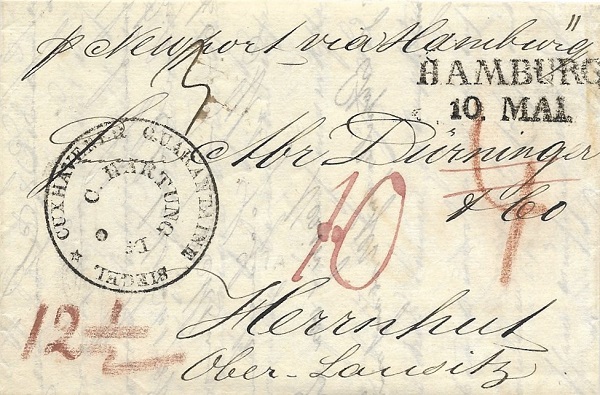 p Newport via Hamburg
HAMBURG
10. MAI.
Abr Dürninger
& Co
CUXHAVENER QUARANTAINE SIEGEL
C. HARTUNG Lt
10
12 1/2
Herrnhut
Ober-Lausitz